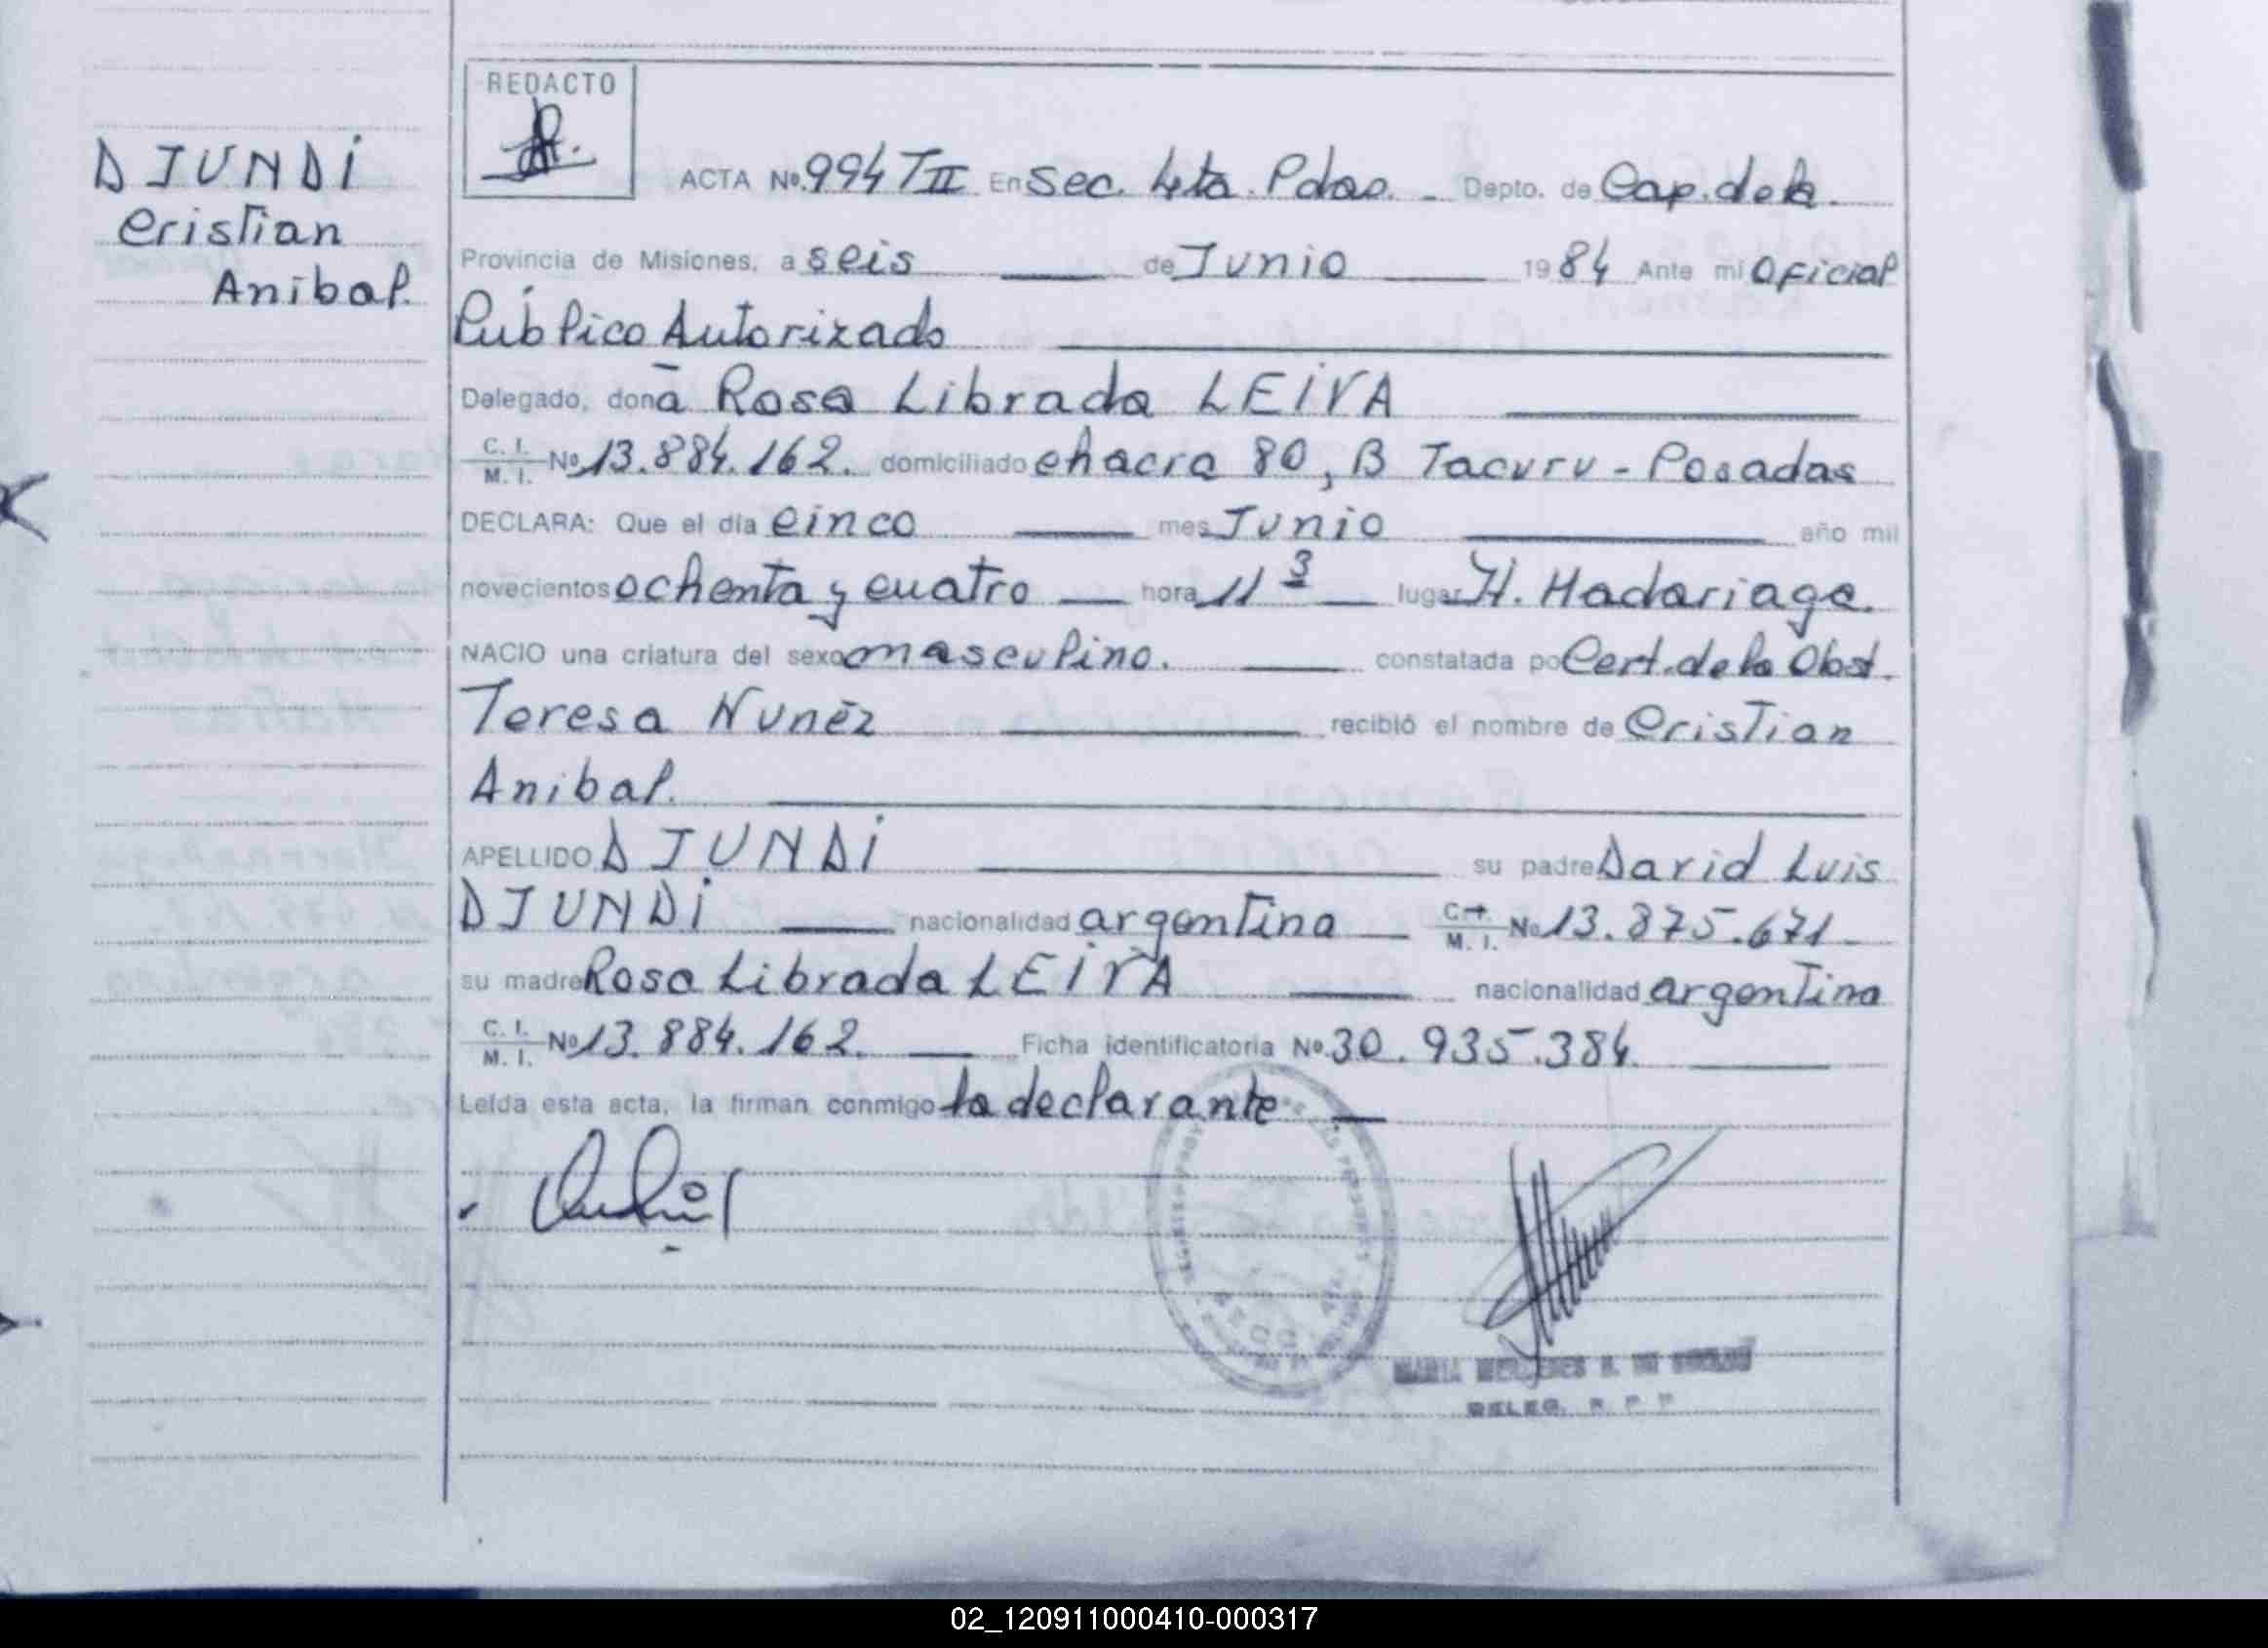 REDACTO
DJUNDI
Cristian
Anibal.
ACTA Nº 994 TII En Sec. 4ta. Pdas. - Depto. de Cap. de la.
Provincia de Misiones, a seis de Junio 1984 Ante mi Oficial
Público Autorizado
Delegado, donã Rosa Librada LEIVA
C. I. M. I. Nº 13.884.162. domiciliado chacra 80, B Tacuru - Posadas
DECLARA: Que el día cinco mes Junio año mil
novecientos ochenta y cuatro hora 11 3 lugar H. Madariaga.
NACIO una criatura del sexo masculino. constatada po Cert. de la Obst.
Teresa Nunẽz recibió el nombre de Cristian
Anibal.
APELLIDO DJUNDI su padre David Luis
DJUNDI nacionalidad argentina C. I. M. I. Nº 13.875.671
su madre Rosa Librada LEIVA nacionalidad argentina
C. I. M. I. Nº 13.884.162. Ficha identificatoria Nº 30.935.384.
Leída esta acta, la firman conmigo la declarante
MARIA MERCEDES
DELEG.
02_120911000410-000317